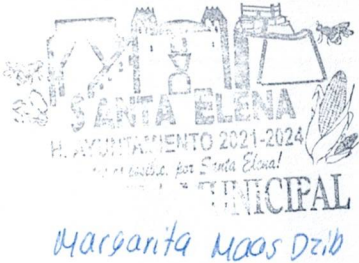 SANTA ELENA
H. AYUNTAMIENTO 2021-2024
por Santa Elena!
MUNICIPAL
Margarita Maas Dzib